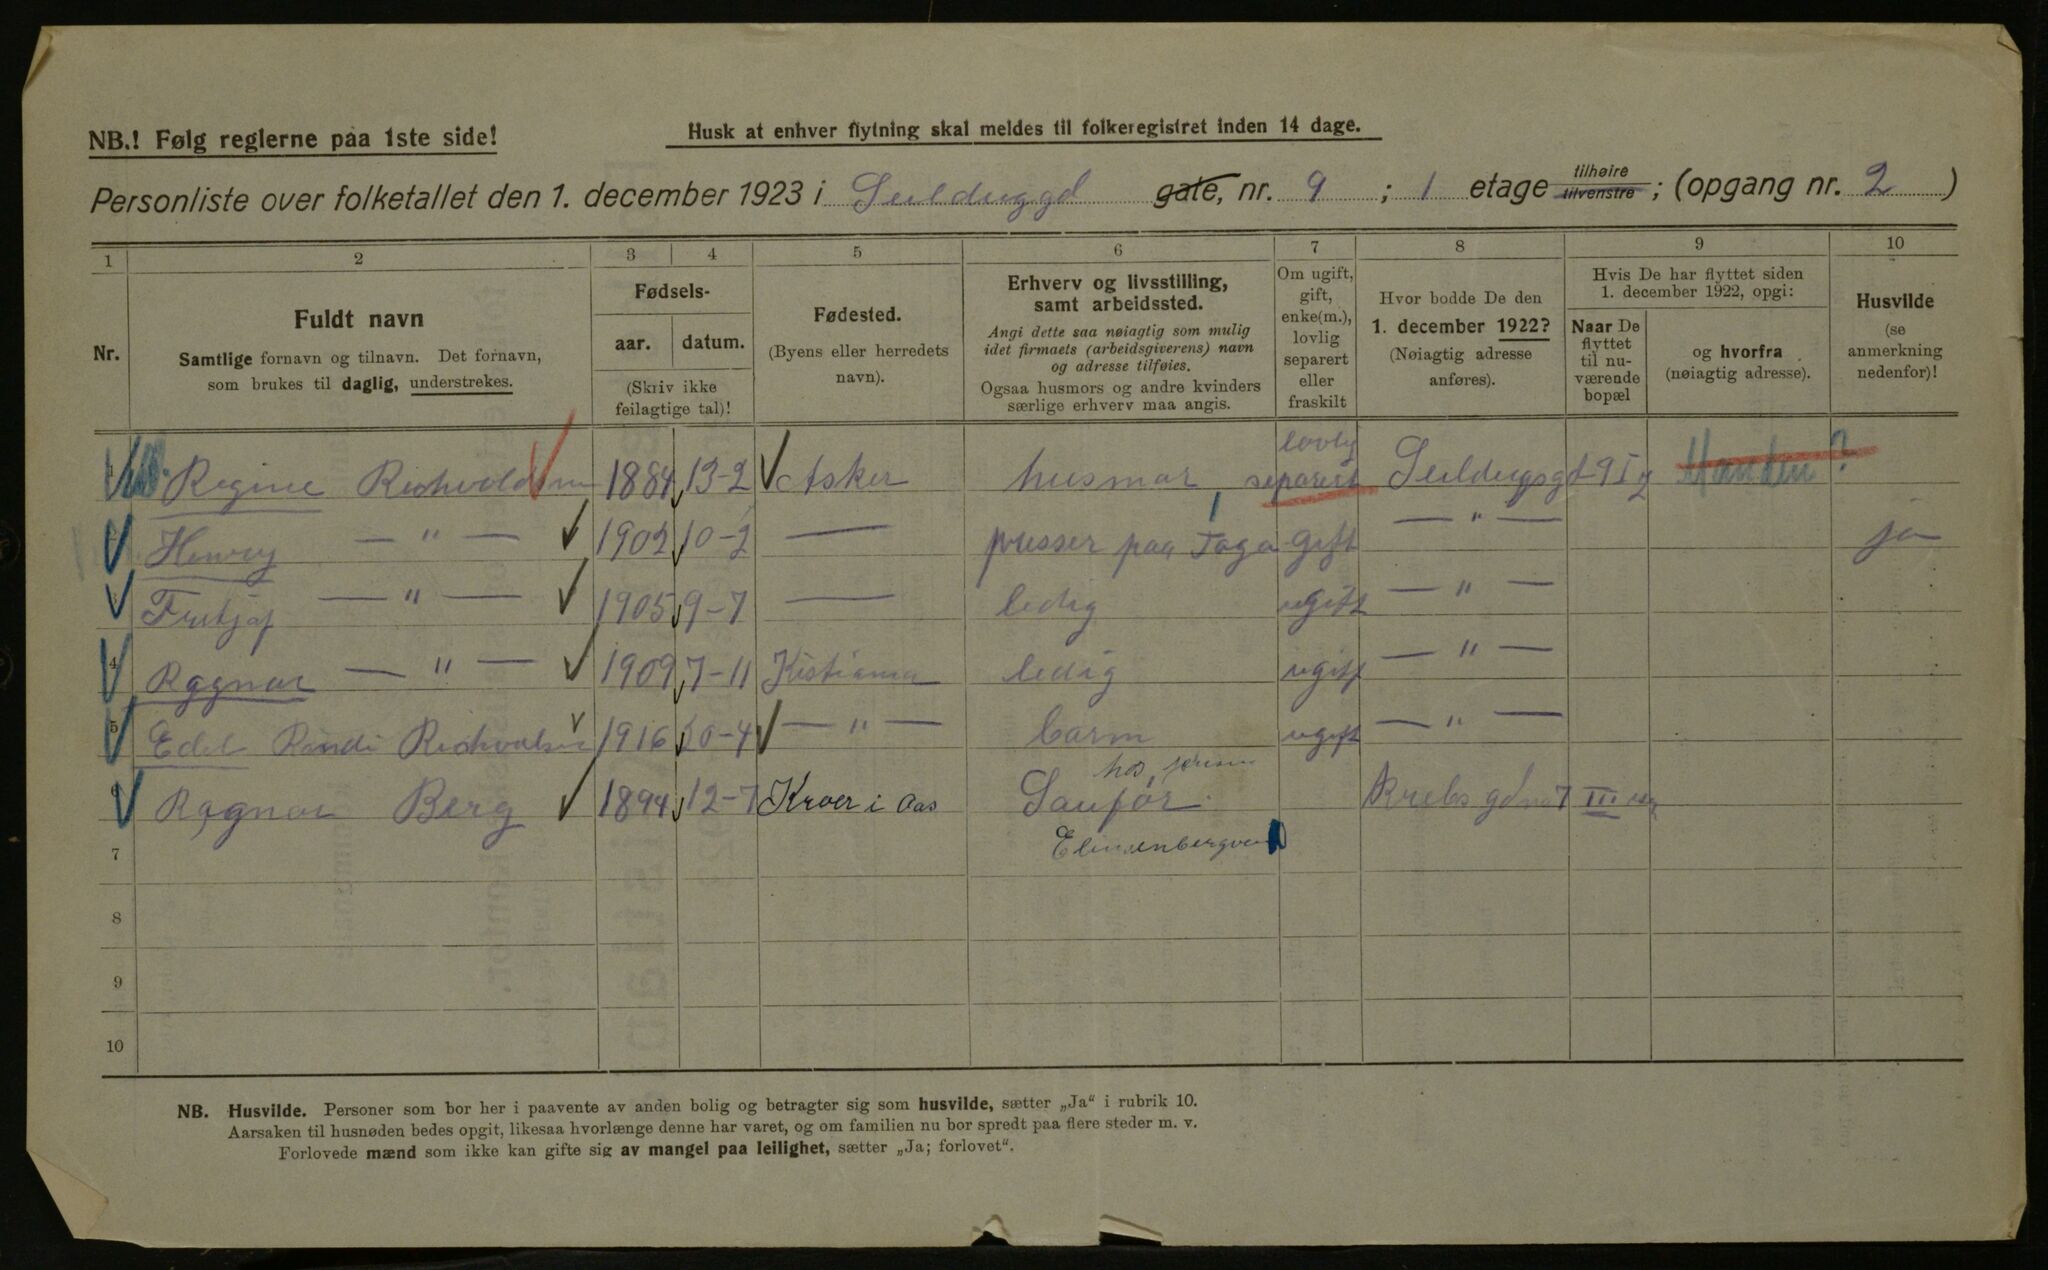 NB.! Følg reglerne paa 1ste side!
Husk at enhver flytning skal meldes til folkeregistret inden 14 dage.
Personliste over folketallet den 1. december 1923 i Seilduggd gate, nr. 9 ; 1 etage tilhøire tilvenstre ; (opgang nr. 2 )
1 2 3 4 5 6 7 8 9 10
Nr.
Fuldt navn
Samtlige fornavn og tilnavn. Det fornavn,
som brukes til daglig, understrekes.
Fødsels-
aar. datum.
(Skriv ikke
feilagtige tal)!
Fødested.
(Byens eller herredets
navn).
Erhverv og livsstilling,
samt arbeidssted.
Angi dette saa nøiagtig som mulig
idet firmaets (arbeidsgiverens) navn
og adresse tilføies.
Ogsaa husmors og andre kvinders
særlige erhverv maa angis.
Om ugift,
gift,
enke(m.),
lovlig
separert
eller
fraskilt
Hvor bodde De den
1. december 1922?
(Nøiagtig adresse
anføres).
Hvis De har flyttet siden
1. december 1922, opgi:
Naar De
flyttet
til nu-
værende
bopæl
og hvorfra
(nøiagtig adresse).
Husvilde
(se
anmerkning
nedenfor)!
1 Regine 1884 13-2 Asker husmor lovlig separert Seildugsgd 9 I Manden?
2 Henry — " — 1902 10-2 — presser paa gift — " — ja
3 Fritjof — " — 1905 9-7 — ledig ugift — " —
4 Ragnar — " — 1909 7-11 Kistiania ledig ugift — " —
5 Edel Randi 1916 20-4 — " — barn ugift — " —
6 Ragnar Berg 1894 12-7 Kroer i Aas hos
7
8
9
10
NB. Husvilde. Personer som bor her i paavente av anden bolig og betragter sig som husvilde, sætter „Ja“ i rubrik 10.
Aarsaken til husnøden bedes opgit, likesaa hvorlænge denne har varet, og om familien nu bor spredt paa flere steder m. v.
Forlovede mænd som ikke kan gifte sig av mangel paa leilighet, sætter „Ja; forlovet“.